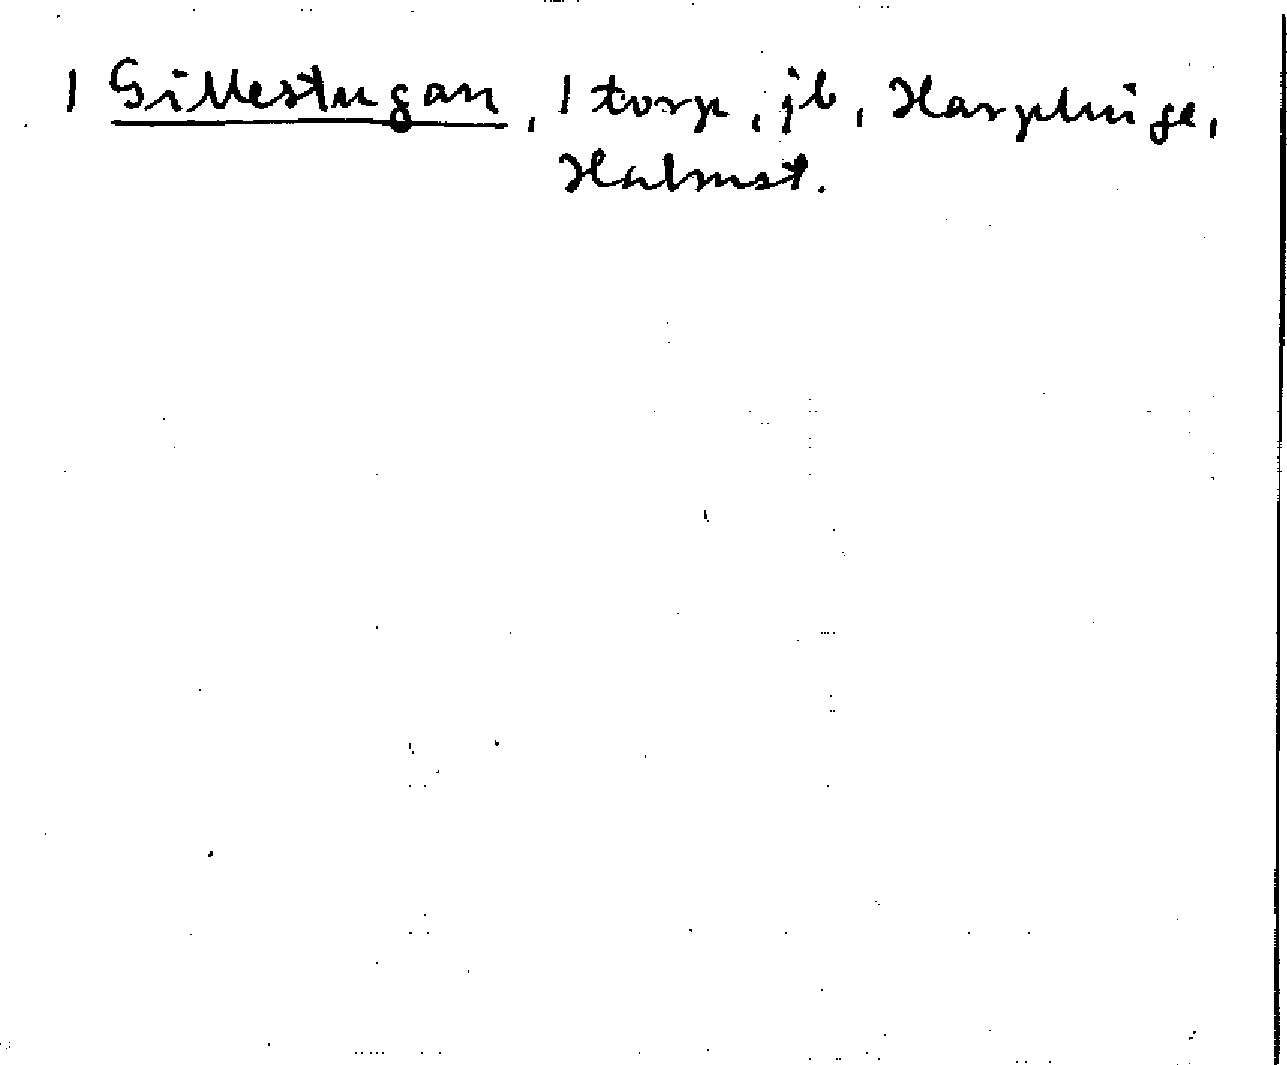 1 Gillestugan, 1 torp, jb, Harplinge,
Halmst.